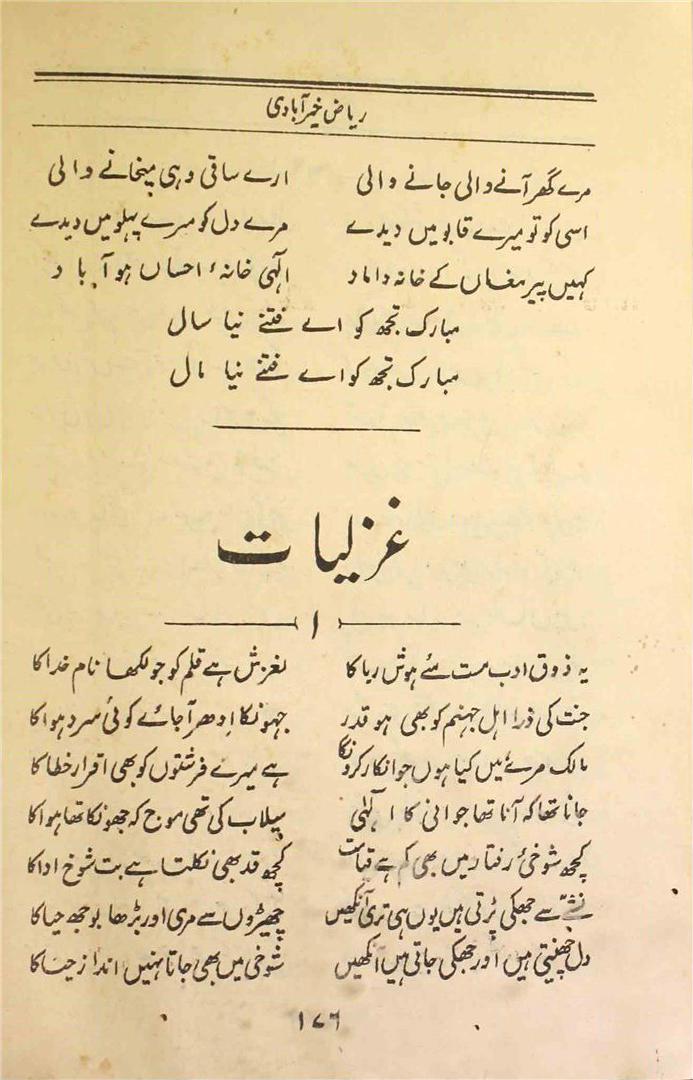 ریاض خیرآبادی
مرے گھر آنے والی جانے والی ارے ساقی وہی میخانے والی
اسی کو تو میرے قابو میں دیدے مرے دل کو مرے پہلو میں دیدے
کہیں پیر مغاں کے خانہ داماد الٰہی خانۂ احساں ہو آباد
مبارک تجھ کو اے فتنے نیا سال
مبارک تجھ کو اے فتنے نیا مال
غزلیات
۱
یہ ذوق ادب مست مئے ہوش ربا کا لغزش ہے قلم کو جو لکھا نام خدا کا
جنت کی ذرا اہل جہنم کو بھی ہو قدر جھونکا ادھر آجائے کوئی سرد ہوا کا
مالک مرے میں کیا ہوں جو انکار کرونگا ہے میرے فرشتوں کو بھی اقرار خطا کا
جانا تھا کہ آنا تھا جوانی کا الٰہی سیلاب کی تھی موج کہ جھونکا تھا ہوا کا
کچھ شوخیٔ رفتار میں بھی کم ہے قیامت کچھ قد بھی نکلتا ہے بت شوخ ادا کا
نشے سے جھکی پڑتی ہیں یوں ہی تری آنکھیں چھیڑوں سے مری اور بڑھا بوجھ حیا کا
دل چھینتی ہیں اور جھکی جاتی ہیں آنکھیں شوخی میں بھی جاتا نہیں انداز حیا کا
۱۷۶